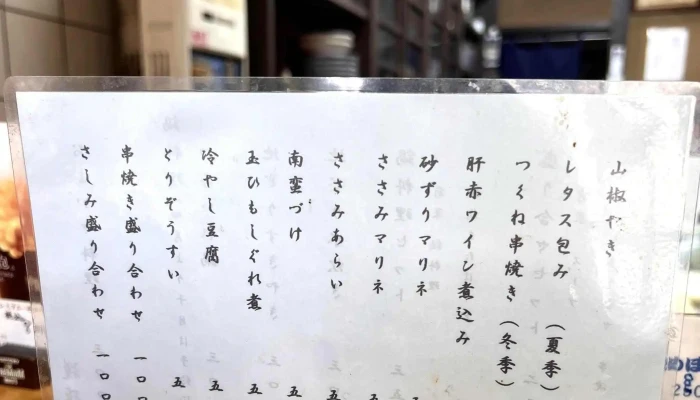 山椒やき
レタス包み (夏季)
つくね串焼き (冬季)
肝赤ワイン煮込み
砂ずりマリネ
ささみマリネ
ささみあらい
南蛮づけ
玉ひもしぐれ煮 五
冷やし豆腐 五
とりぞうすい 五
串焼き盛り合わせ 一〇〇
さしみ盛り合わせ 一〇〇